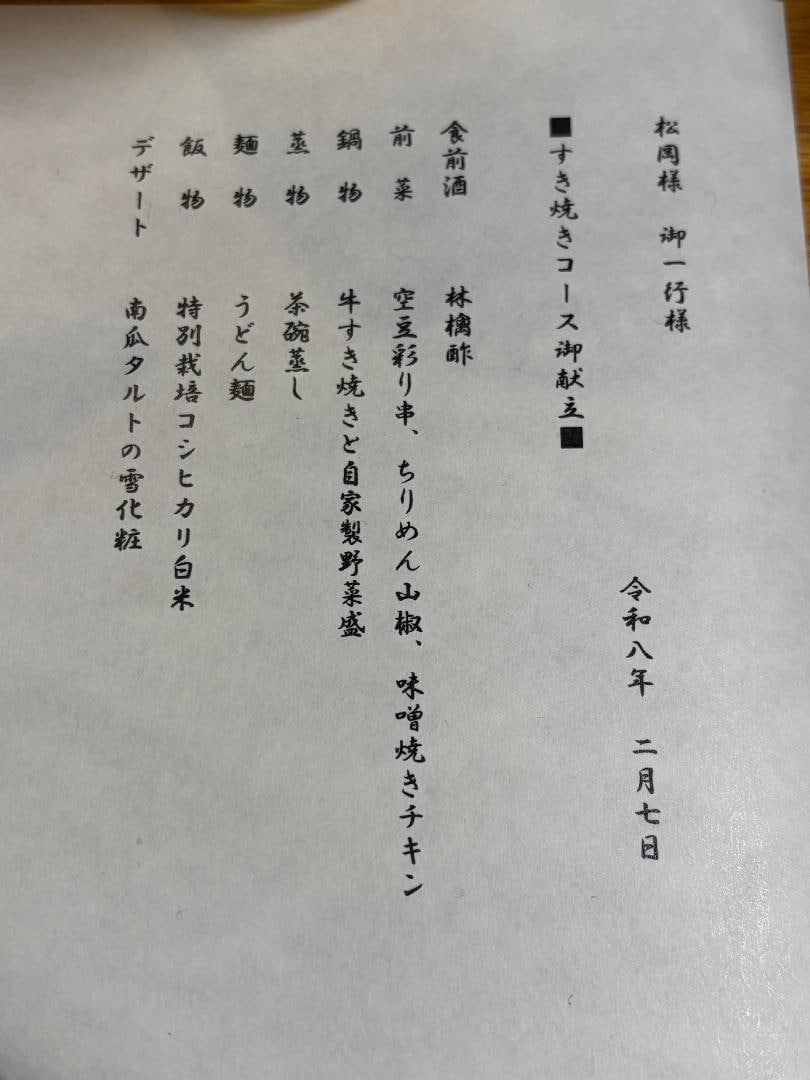 松岡様 御一行様
令和八年 二月七日
■すき焼きコース御献立■
食前酒 林檎酢
前菜 空豆彩り串、ちりめん山椒、味噌焼きチキン
鍋物 牛すき焼きと自家製野菜盛
蒸物 茶碗蒸し
麺物 うどん麺
飯物 特別栽培コシヒカリ白米
デザート 南瓜タルトの雪化粧